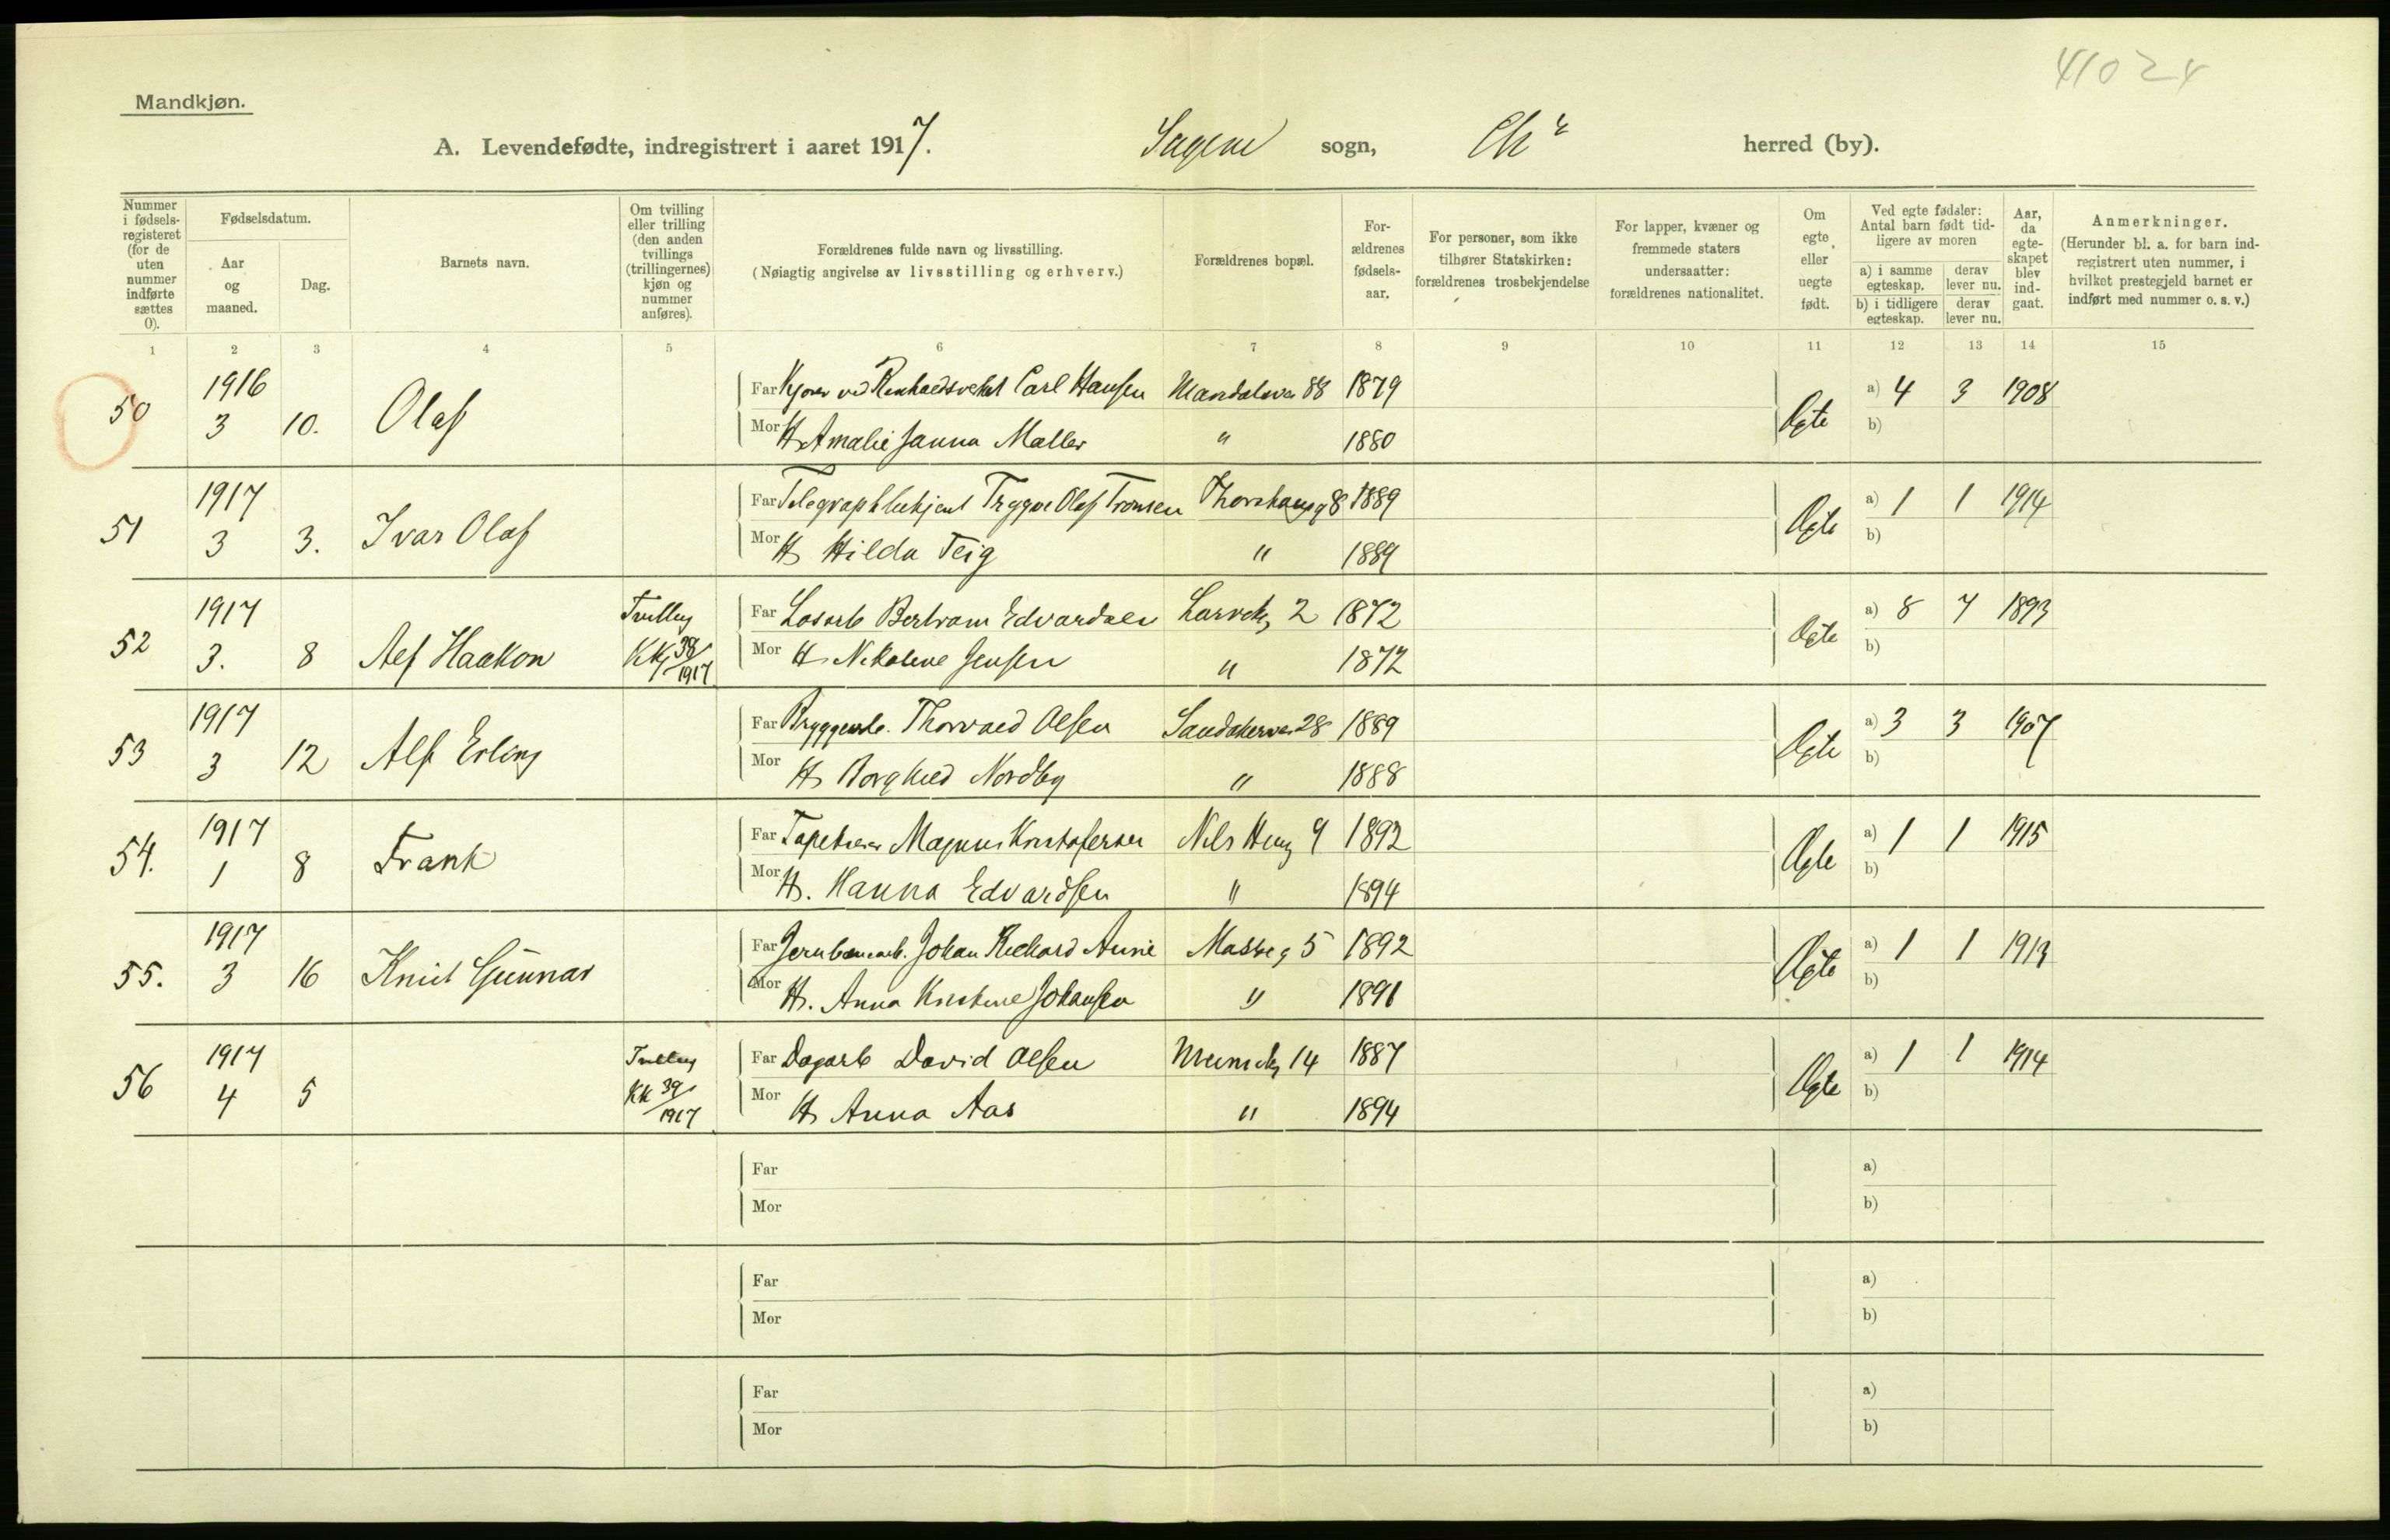 41024
Mandkjøn.
A. Levendefødte, indregistrert i aaret 1917. Sagene sogn, Chr herred (by).
Nummer i fødsels-registeret (for de uten nummer indførte sættes 0).
Fødselsdatum.
Aar og maaned.
Dag.
Barnets navn.
Om tvilling eller trilling (den anden tvillings (trillingernes) kjøn og nummer anføres).
Forældrenes fulde navn og livsstilling.
(Nøiagtig angivelse av livsstilling og erhverv.)
Forældrenes bopæl.
For-ældrenes fødsels-aar.
For personer, som ikke tilhører Statskirken: forældrenes trosbekjendelse
For lapper, kvæner og fremmede staters undersaatter: forældrenes nationalitet.
Om egte eller uegte født.
Ved egte fødsler: Antal barn født tid-ligere av moren
a) i samme egteskap. derav lever nu.
b) i tidligere egteskap. derav lever nu.
Aar, da egte-skapet blev ind-gaat.
Anmerkninger.
(Herunder bl. a. for barn ind-registrert uten nummer, i hvilket prestegjeld barnet er indført med nummer o. s. v.)
1 2 3 4 5 6 7 8 9 10 11 12 13 14 15
1916 Far Kjører ved Carl Hansen 88 1879 a) 4 3 1908
50 3 10. Olaf Mor H. Amalie Janna Møller " 1880 Egte b)
1917 Far Trygve Olaf Tronsen Thorshaugg 8 1889 a) 1 1 1914
51 3 3. Ivar Olaf Mor H. Hilda Teig " 1889 Egte b)
1917 Tvilling Far Løsarb Bertram Edvardsen Larvikg 2 1872 a) 8 7 1893
52 3. 8 Alf Haakon KK 38/1917 Mor H. Nikoline Jensen " 1872 Egte b)
1917 Far Bryggearb. Thorvald Olsen Sandakerve 28 1889 a) 3 3 1907
53 3 12 Alf Erling Mor H. Borghild Nordby " 1888 Egte b)
1917 Far Tapetserer Magnus Kristofersen Nils Hug 9 1892 a) 1 1 1915
54. 1 8 Frank Mor H. Hanna Edvardsen " 1894 Egte b)
1917 Far Jernbanearb. Johan Rickard 5 1892 a) 1 1 1913
55. 3 16 Knut Gunnar Mor H. Anna Kristine Johansen " 1891 Egte b)
1917 Tvilling Far Dagarb David Olsen 14 1887 a) 1 1 1914
56 4 5 KK 39/1917 Mor H. Anna Aas " 1894 Egte b)
Far a)
Mor b)
Far a)
Mor b)
Far a)
Mor b)